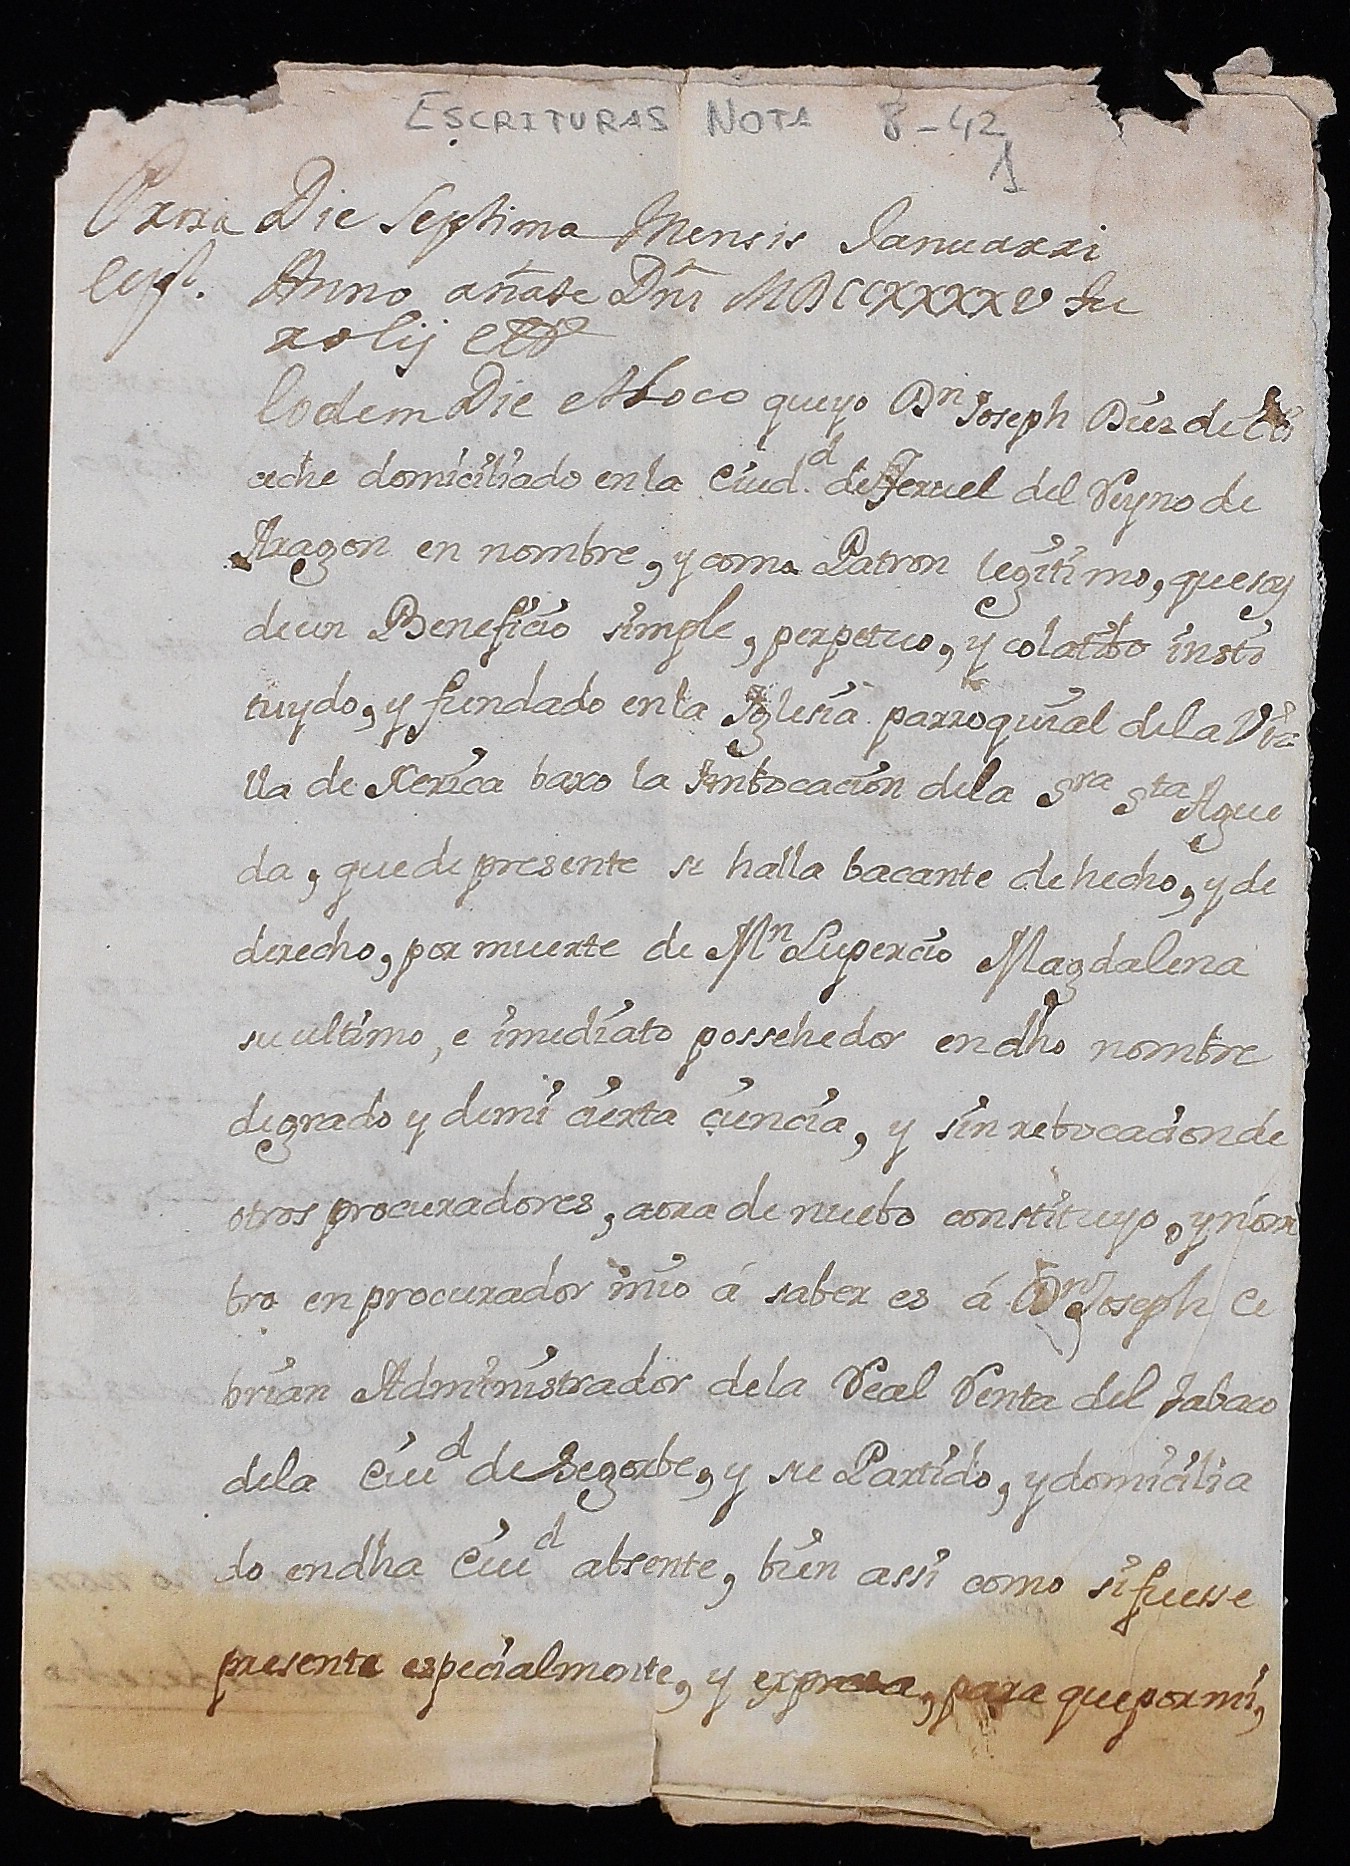 ESCRITURAS NOTA 8-42
1
Die Septima Mensis Januarii
Anno a natte Dni MDCCXXXXV Tu
rolij ettt
Eodem Die et Loco que yo Dn Joseph Diez de Ct
ache domiciliado en la Ciud.d de Teruel del Reyno de
Aragon en nombre, y como Patron legitimo, que soy
de un Beneficio simple, perpetuo, y colatibo insti
tuydo, y fundado en la Iglesia parroquial de la Vi=
lla de Xerica baxo la Inbocacion de la Sra Sta Ague
da, que de presente se halla bacante de hecho, y de
derecho, por muerte de Mn Lupercio Magdalena
su ultimo, e imediato possehedor en dho nombre
de grado y de mi cierta ciencia, y sin rebocacion de
otros procuradores, aora de nuebo constituyo, y nom
bro en procurador mio á saber es á Dn Joseph Ce
brian Administrador de la Real Renta del Tabaco
de la Ciud de Segorbe, y su Partido, y domicilia
do en dha Ciud absente, bien assi como si fuesse
presente especialmente, y expresa, para que por mi,